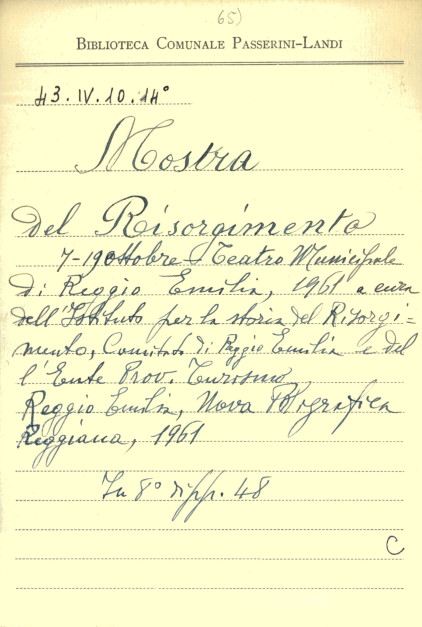 65)
BIBLIOTECA COMUNALE PASSERINI-LANDI
43.IV.10.14°
Mostra
del Risorgimento
7-19 ottobre - Teatro Municipale
di Reggio Emilia, 1961 a cura
dell'Istituto per la storia del Risorgi=
mento, Comitato di Reggio Emilia e del
l'Ente Prov. Turismo
Reggio Emilia, Nova
Reggiana, 1961
In 8° di pp. 48
C